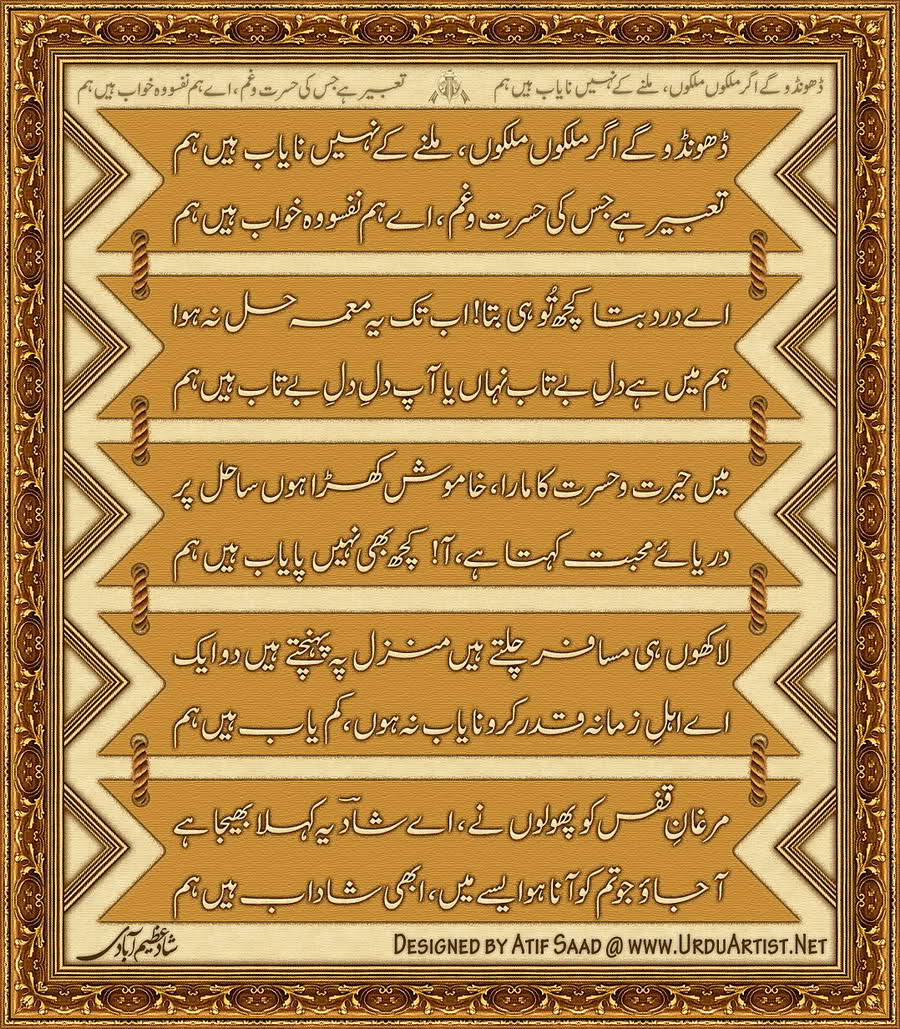 ڈھونڈو گے اگر ملکوں ملکوں، ملنے کے نہیں نایاب ہیں ہم
تعبیر ہے جس کی حسرت و غم، اے ہم نفسو وہ خواب ہیں ہم
ڈھونڈو گے اگر ملکوں ملکوں، ملنے کے نہیں نایاب ہیں ہم
تعبیر ہے جس کی حسرت و غم، اے ہم نفسو وہ خواب ہیں ہم
اے درد بتا کچھ تُو ہی بتا! اب تک یہ معمہ حل نہ ہوا
ہم میں ہے دلِ بے تاب نہاں یا آپ دلِ دلِ بے تاب ہیں ہم
میں حیرت و حسرت کا مارا، خاموش کھڑا ہوں ساحل پر
دریائے محبت کہتا ہے، آ! کچھ بھی نہیں پایاب ہیں ہم
لاکھوں ہی مسافر چلتے ہیں منزل پہ پہنچتے ہیں دو ایک
اے اہلِ زمانہ قدر کرو نایاب نہ ہوں، کم یاب ہیں ہم
مرغانِ قفس کو پھولوں نے، اے شادؔ یہ کہلا بھیجا ہے
آ جاؤ جو تم کو آنا ہو ایسے میں، ابھی شاداب ہیں ہم
شاد عظیم آبادی
DESIGNED BY ATIF SAAD @ WWW.URDUARTIST.NET